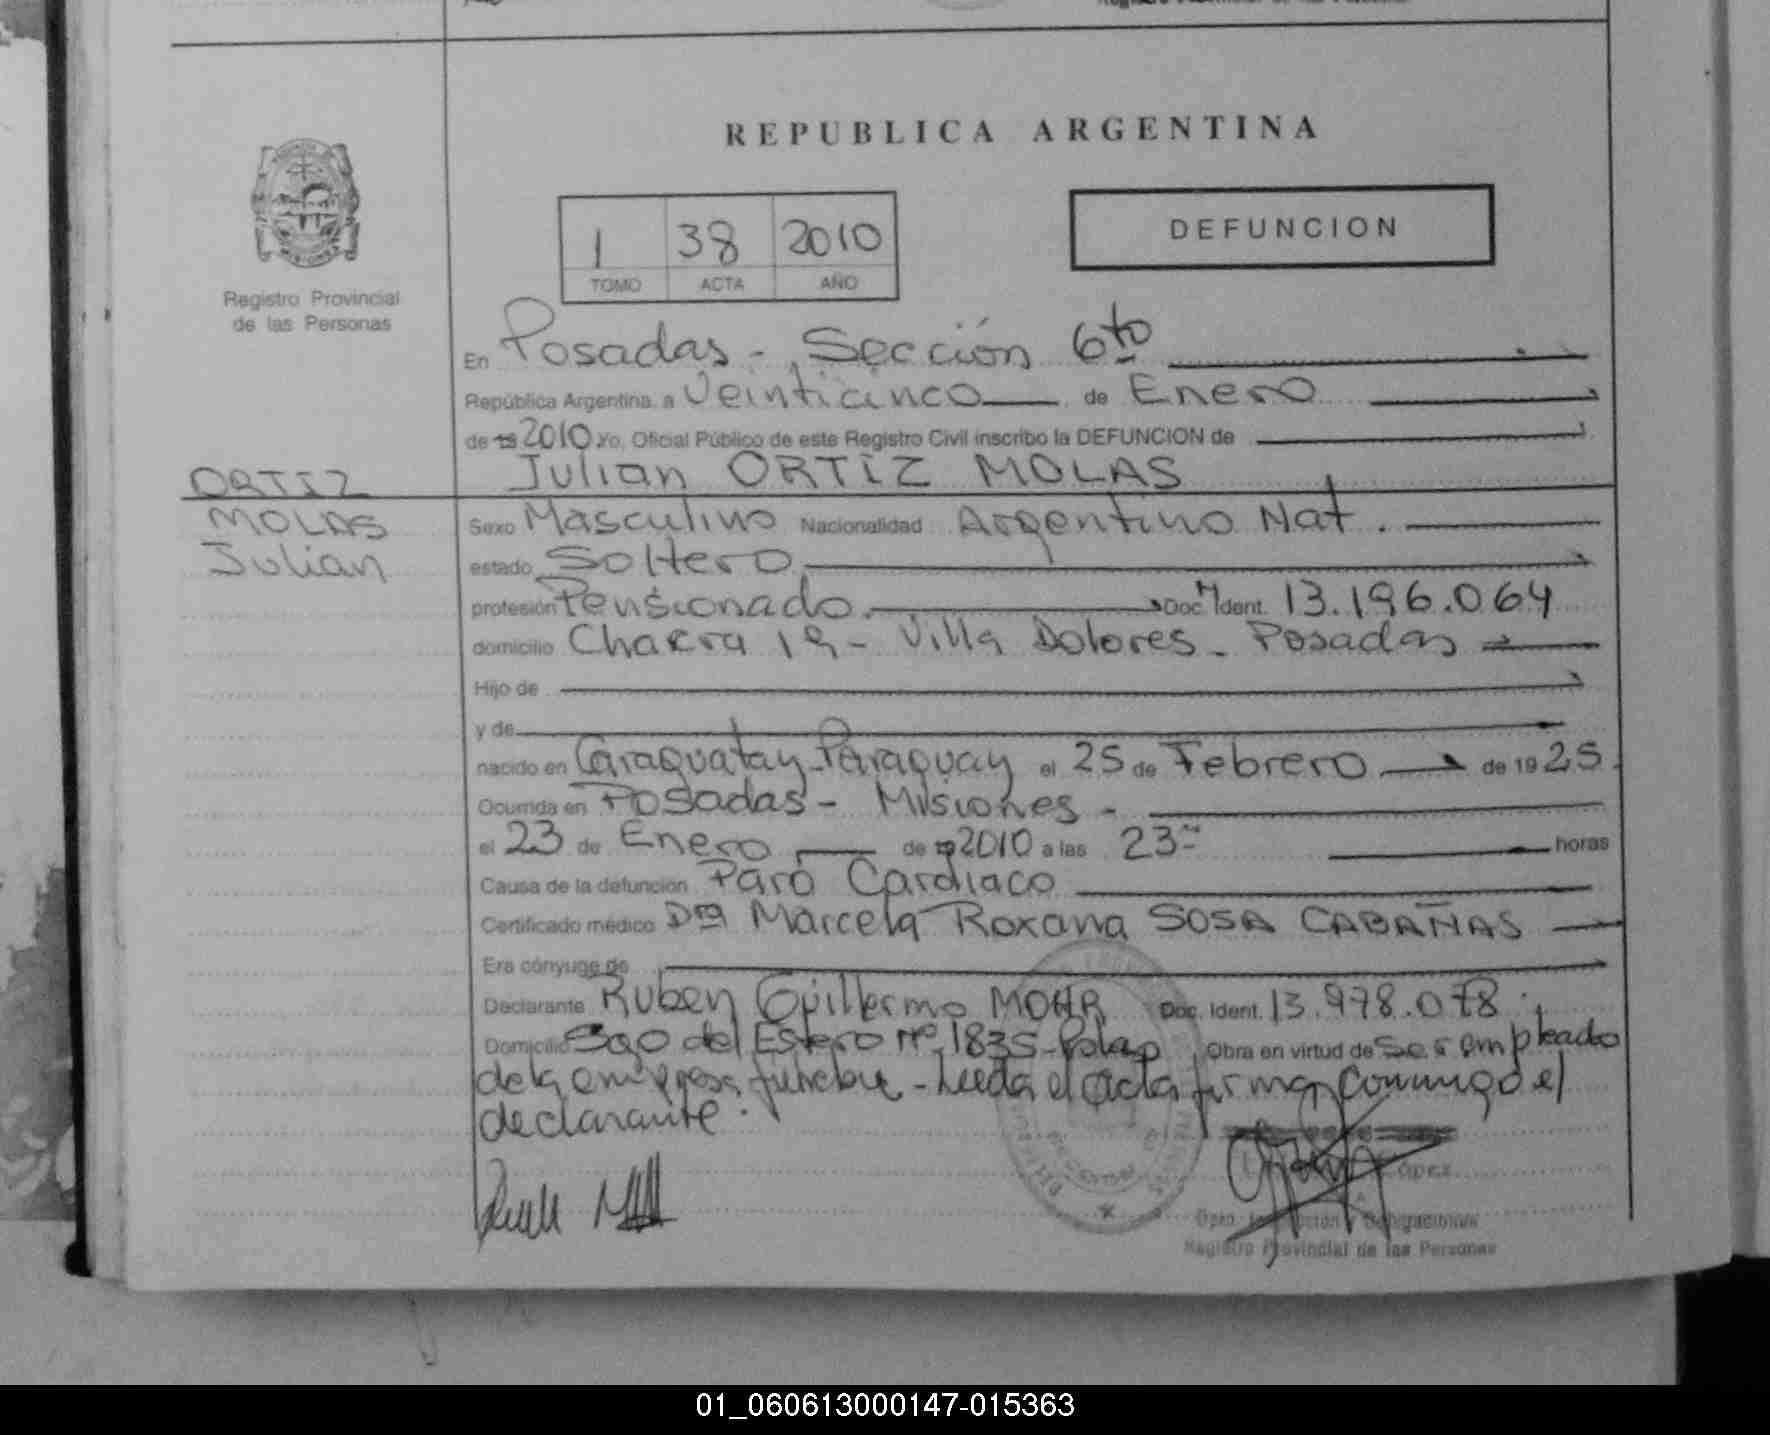 REPUBLICA ARGENTINA
1 38 2010
TOMO ACTA AÑO
DEFUNCION
Registro Provincial
de las Personas
En Posadas - Sección 6to
República Argentina a Veinticinco de Enero
de 19 2010 Yo, Oficial Público de este Registro Civil inscribo la DEFUNCION de
Julian ORTIZ MOLAS
ORTIZ
MOLAS
Julian
Sexo Masculino Nacionalidad Argentino Nat.
estado Soltero
profesión Pensionado Doc. Ident. 13.196.064
domicilio Chacra 19 - Villa Dolores - Posadas
Hijo de
y de
nacido en Caraguatay - Paraguay el 25 de Febrero de 1925
Ocurrida en Posadas - Misiones -
el 23 de Enero de 19 2010 a las 23 horas
Causa de la defunción Paro Cardiaco
Certificado médico Dra Marcela Roxana SOSA CABAÑAS
Era cónyuge de
Declarante Ruben Guillermo MOHR Doc. Ident. 13.978.078
Domicilio Sgo del Estero nº 1835 - Pdas Obra en virtud de ser empleado
de la empresa funebre - Leeda el acta firma conmigo el
declarante.
López
Registro Provincial de las Personas
01_060613000147-015363